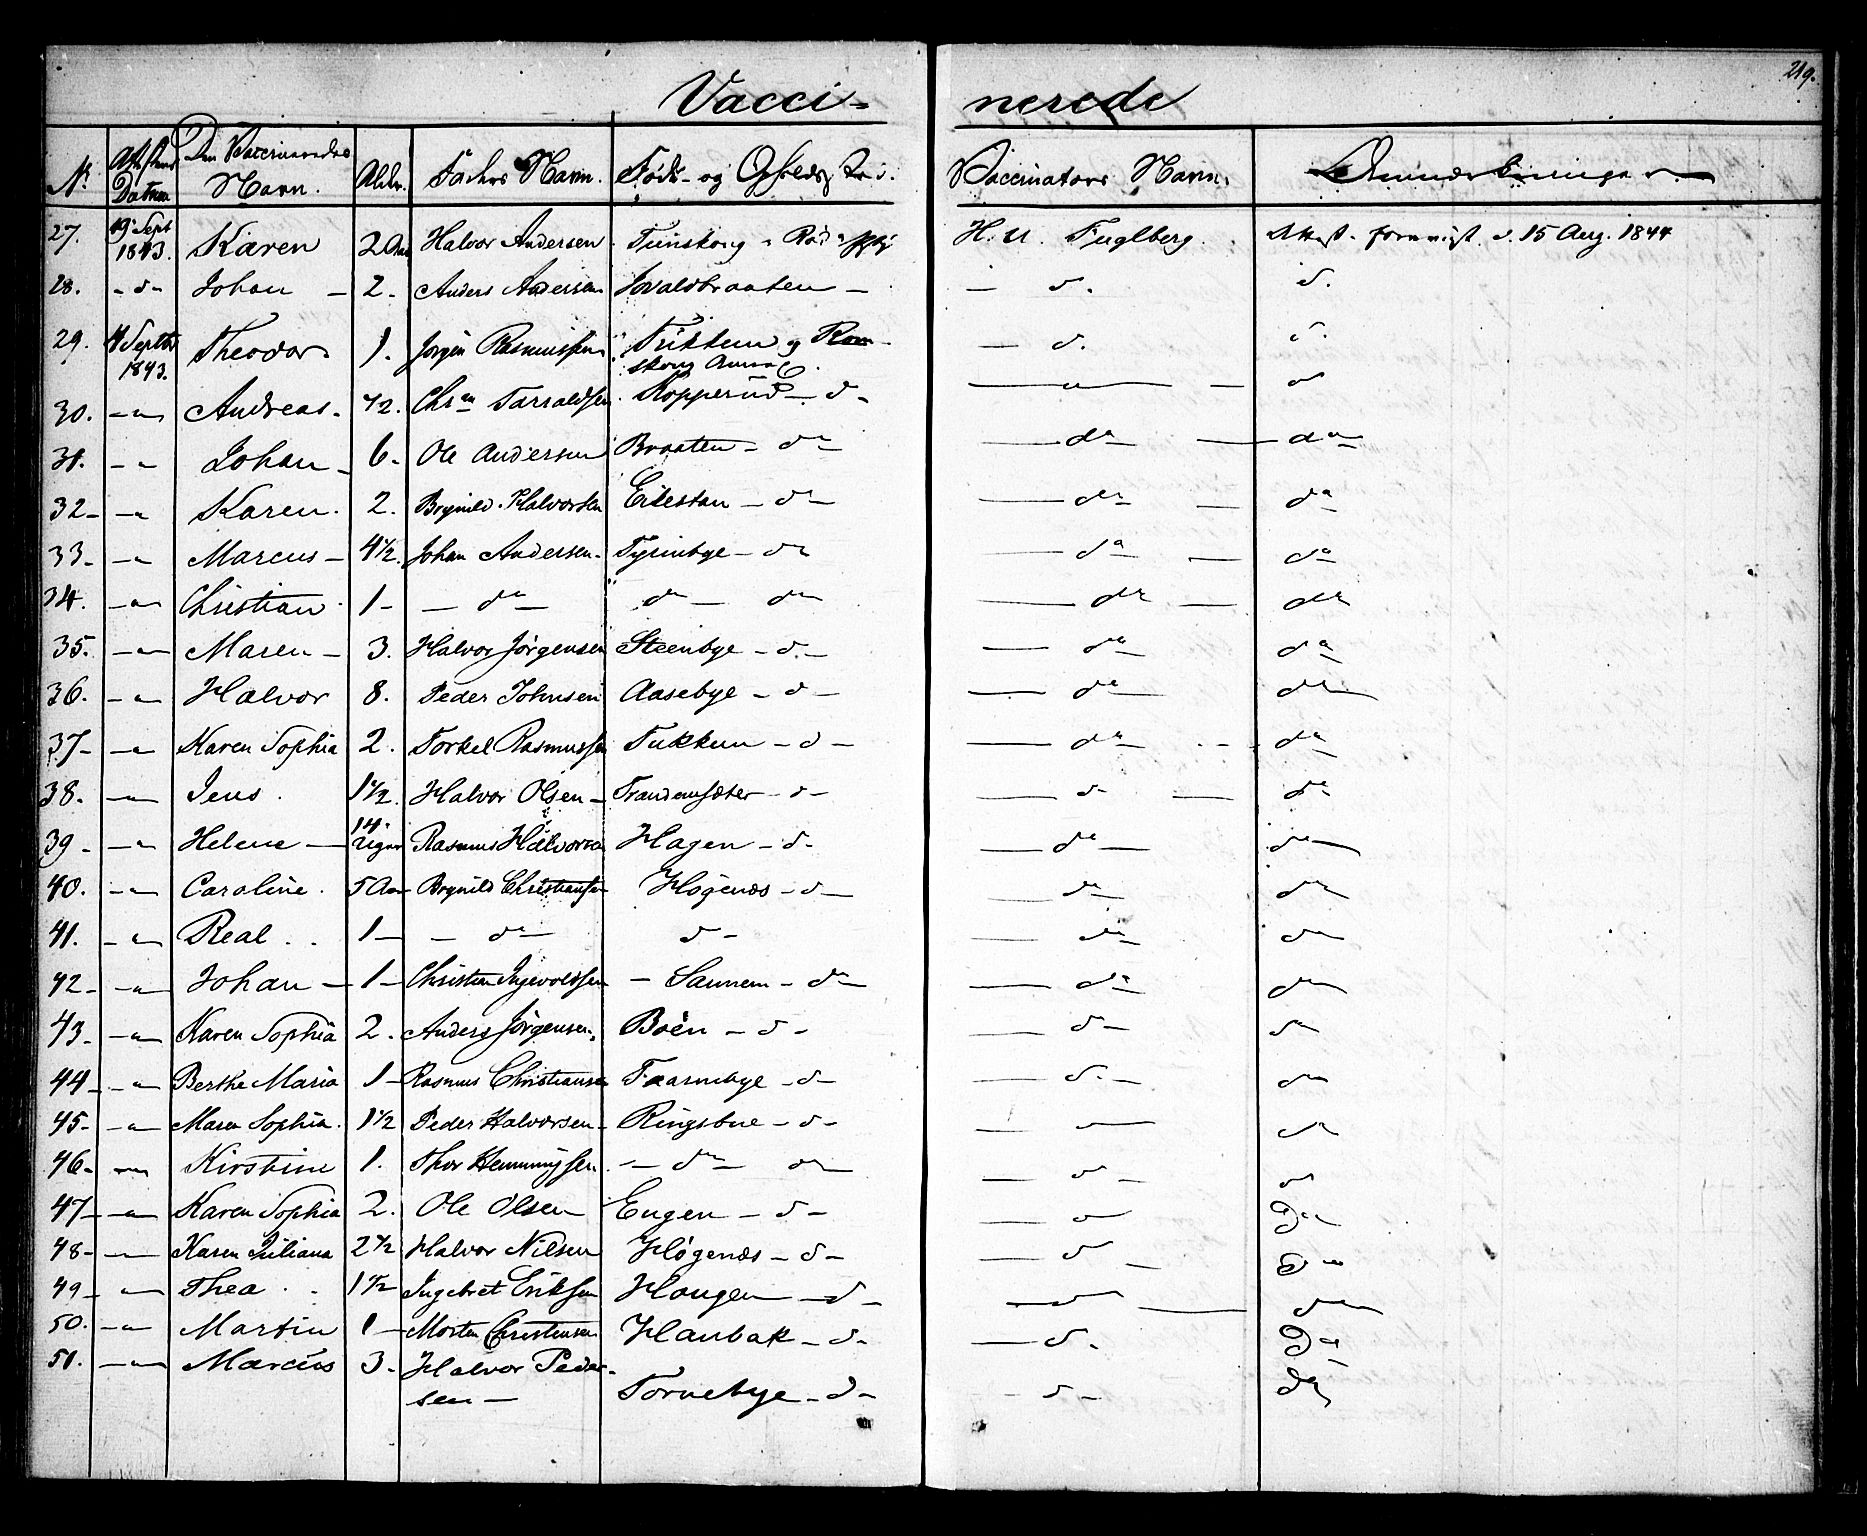 219.
Vacci- nerede
No. Attestens Datum Den Vaccineredes Navn. Alder. Faders Navn. Føde- og Opholds Vaccinators Navn. Anmærkninger
27. 19 Sept 1843. Karen 2 Aar Halvor Andersen H. U. Fuglberg. Attest d. 15 Aug. 1844
28. - d - Johan - 2. Anders Andersen - - d. d.
29. 4 Septbr 1843. Theodor. 1. Jørgen Rasmussen Tukken og Røm- skong Annex. - d. d.
30. - " - Andreas - 1/2. Chr.n Taraldsen Kopperud - d - - " - - d
31. - " Johan - 6 - Ole Andersen Braaten - do - do - - do
32 - - " Karen. 2. Brynild Halvorsen Eilestan - do - do - do
33 - - " Marcus - 4 1/2. Johan Andersen - Tyrinbye - do - do - do
34. - " - Christian 1 - - do - do - do - do - do
35. - " - Maren - 3. Halvor Jørgensen Steenbye - d. - - do do
36. - " - Halvor 8. Peder Johnsen Aasebye - d - - do - do
37 - - " Karen Sophia 2. Torkel Rasmussen Tukken - d - - do - do
38. - " - Jens. 1 1/2. Halvor Olsen - Trandemsæter - d - - d - do
39 - - " - Helene - 14 Uger Rasmus Halvorsen Hagen - d - - do - do -
40. - " Caroline. 5 Aar Brynild Christiansen Høgenæs - d - - do do
41. - " - Real.. 1 - - do - d - - do do
42 - - " - Johan - 1 - Christian Ingevoldsen - Sannem - do - do do
43 - - " - Karen Sophia 2. Anders Jørgensen. Boën - d - - d - do
44 - - " - Berthe Maria 1 - Rasmus Christiansen Taarnebye - d - - d. - do
45 - - " - Maren Sophia. 1 1/2 Peder Halvorsen - Ringsbue - d - - " - do
46 - " Kirstine 1. Thor Hemmingsen - do - do - d - d
47 - - " - Karen Sophia 2. Ole Olsen Engen - d - - d Do
48 - - " - Karen Juliana 2 1/2 Halvor Nilsen Høgenæs - d - - d - Do
49 - - " - Thea.. 1 1/2 Ingebret Eriksen Haugen - d - - d - do
50. - " - Martin 1 - Morten Christensen Haubak - d - - d. Do
51. - " - Marcus 3 - Halvor Peder-
sen - Tornebye - d - - d - do